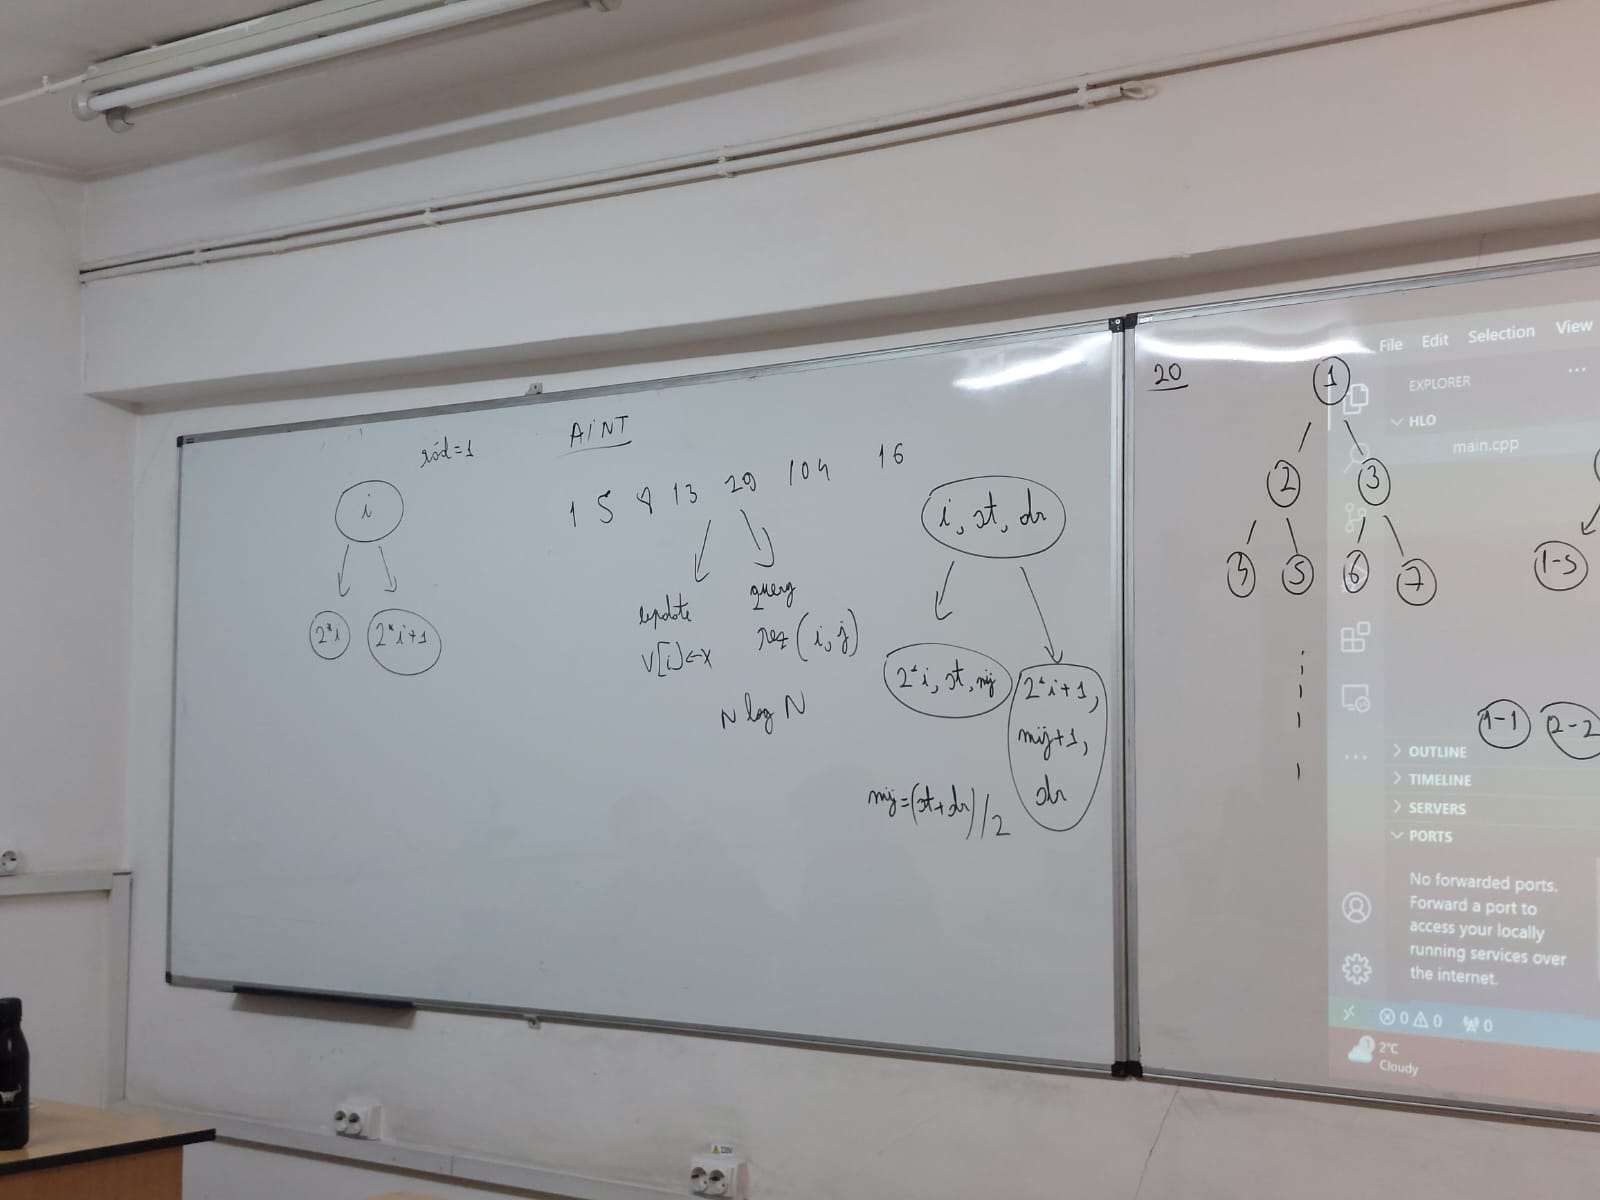 AINT
răd=1
1 5 8 13 29 104 16
i
2*i 2*i+1
update
v[i]←x
query
rez(i,j)
N log N
i, st, dr
2*i, st, mij
2*i+1,
mij+1,
dr
mij=(st+dr)/2
20
1
2 3
3 5 6 7
1-5
1-1 2-2
File Edit Selection View
EXPLORER
HLO
main.cpp
OUTLINE
TIMELINE
SERVERS
PORTS
No forwarded ports.
Forward a port to
access your locally
running services over
the internet.
0 0 0
1
2°C
Cloudy